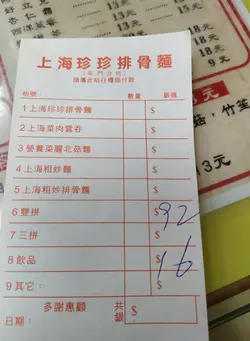 上海珍珍排骨麵
請攜此咭往櫃檯付款
枱號:
銀碼
1 上海珍珍排骨麵 $
2 上海菜肉雲吞 $
3 營養菜腿北菇麵 $
4 上海粗炒麵 $
5 上海粗炒排骨麵 $
6 雙拼 $ 92
7 三拼 $
8 飲品 $ 16
9 其它: $
多謝惠顧 共銀 $
日期:
18元
9元
13元
13元
竹笙